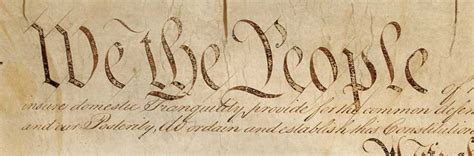 We the People of
insure domestic Tranquility, provide for the common defence
and our Posterity, do ordain and establish this Constitution